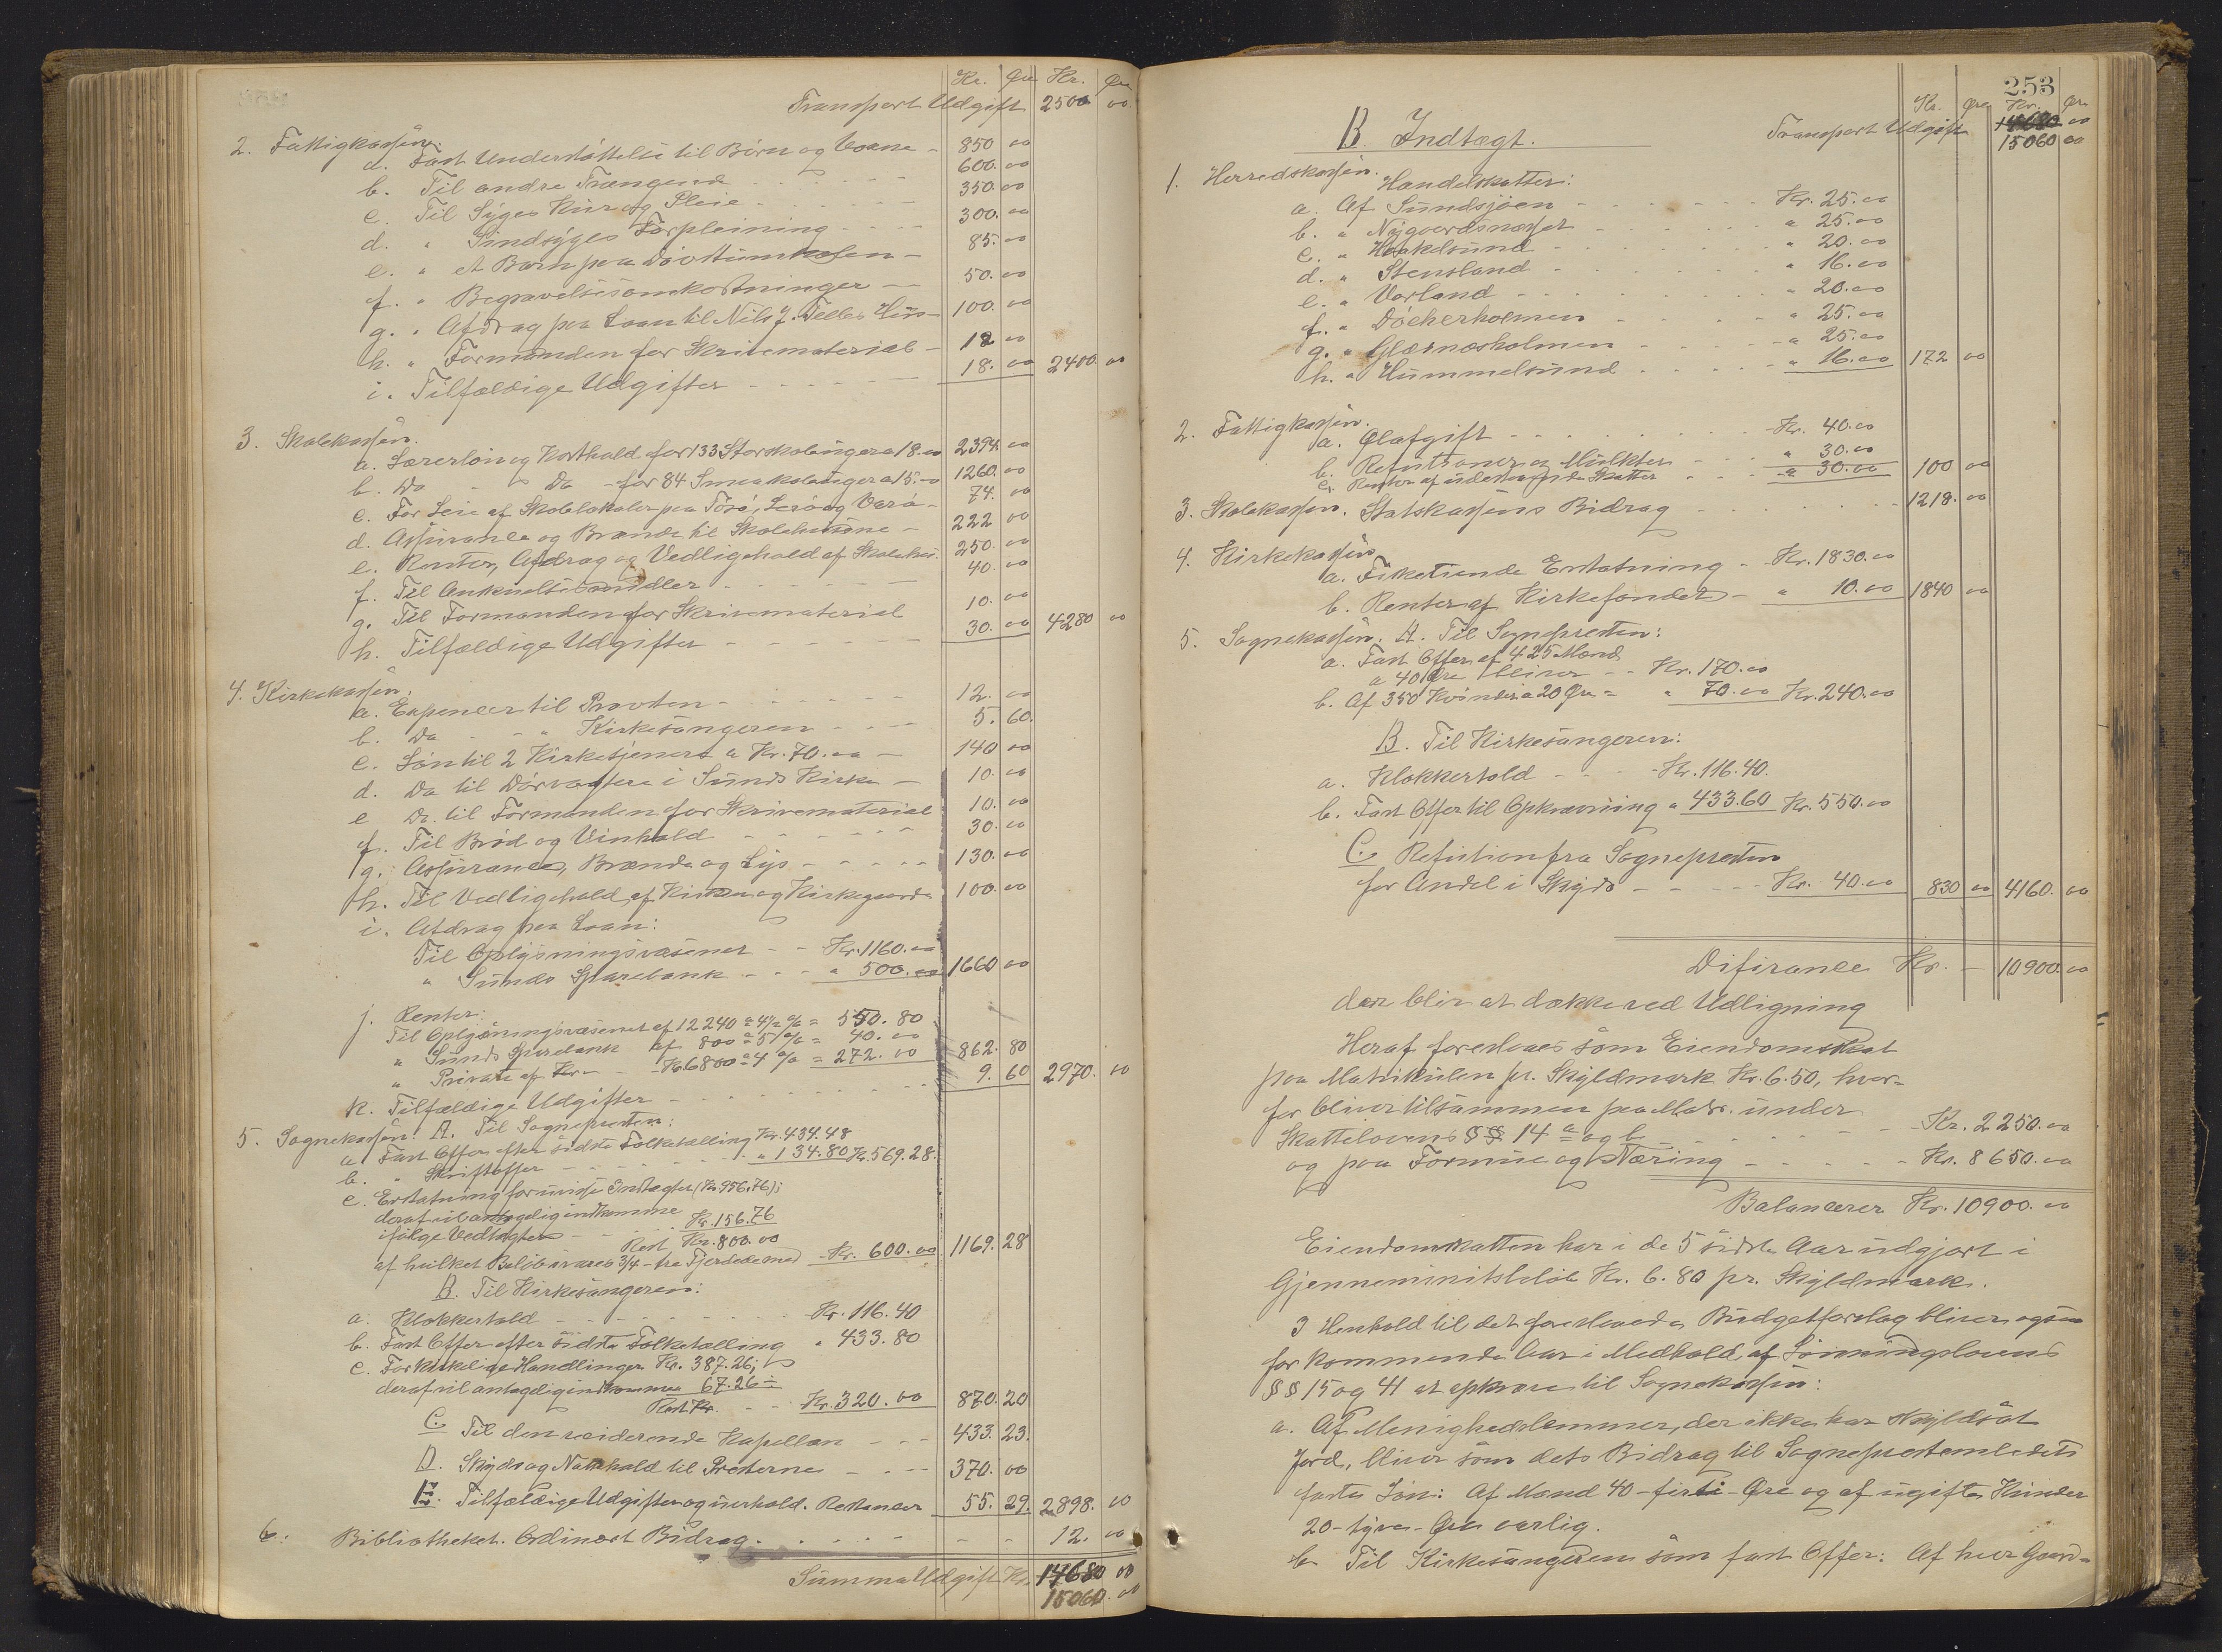 Kr. Øre Kr. Øre
Transport Udgift 2500 00
2. Fattigkassen.
a. Fast Understøttelse til Børn og Voxne - 850 00
b. Til andre Trængende - - - 600. 00
c. Til Syges Kur og Pleie - - - 350. 00
d. " Sindsyges Forpleining - - - 300. 00
e. " et Barn paa Døvstumskolen - 85. 00
f. " Begravelsesomkostninger - - 50. 00
g. " Afdrag paa Laan til Nils J. Telles Hus - 100. 00
h. " Formanden for Skrivematerial - 12 00
i. Tilfældige Udgifter - - - 18. 00 2400. 00
3. Skolekassen.
a. Lærerløn og Kosthold for 133 Storskoleuger a 18.00 2394. 00
b. Do " Do - for 84 Smaaskoleuger a 15.00 1260. 00
c. For Leie af Skolelokaler paa Torø, Lerø og Værø - 74. 00
d. Assurance og Brænde til Skolehusene - 222 00
e. Renter, Afdrag og Vedligehold af Skolehus. 250. 00
f. Til Anskuelsesmidler - - - 40. 00
g. Til Formanden for Skrivematerial 10. 00
h. Tilfældige Udgifter - - - 30. 00 4280 00
4. Kirkekassen.
a. Expencer til Provsten - - - 12. 00
b. Do - - " Kirkesangeren - - - 5. 60.
c. Løn til 2 Kirketjenere a Kr. 70.00 - 140 00
d. Do til Dørvogtere i Sunds Kirke - 10. 00
e Do. til Formanden for Skrivematerial 10. 00
f. Til Brød og Vinhold - - - 30. 00
g. Assurance, Brænde og Lys - - - 130. 00
h. Til Vedligehold af Kirken og Kirkegaarde 100. 00
i. Afdrag paa Laan:
Til Oplysningsvæsenet - - Kr. 1160. 00
" Sunds Sparebank - - - " 500. 00 1660 00
j. Renter:
Til Oplysningsvæsenet af 12240 a 4½ % = 550. 80
" Sunds Sparebank af 800 a 5 % = 40. 00
" Private af Kr. - - Kr. 6800 a 4 % = 272. 00 862. 80
k. Tilfældige Udgifter - - - 9. 60 2970. 00
5. Sognekassen: A. Til Sognepresten:
a. Fast Offer efter sidste Folketælling Kr. 434.48
b. " Skriftoffer - - - " 134.80 Kr. 569.28.
c. Erstatning for uvisse Indtægter (Kr. 956.76);
deraf vil antagelig indkomme
ifølge Vedtægten - - Kr. 156.76
Rest Kr. 800.00
af hvilket Beløb svares 3/4 - tre Fjerdede med Kr. 600. 00 1169. 28
B. Til Kirkesangeren:
a. Klokkertold - - - Kr. 116. 40
b. Fast Offer efter sidste Folketælling " 433. 80
c. For kirkelige Handlinger Kr. 387.26;
deraf vil antagelig indkomme 67.26
Rest Kr. - - Kr. 320. 00 870. 20
C. Til den residerende Kapellan - - - 433. 23.
D. Skyds og Nattehold til Presterne - - - 370. 00
E. Tilfældige Udgifter og uerhold. Restancer 55. 29. 2898. 00
6. Bibliotheket. Ordinært Bidrag. - - - 12. 00
Summa Udgift Kr. 14680 00
15060. 00
253
Kr. Øre Kr. Øre
Transport Udgift 14680 00
15060 00
B. Indtægt.
1. Herredskassen.
Handelsskatter:
a. Af Sundsjøen - - - Kr. 25.00
b. " Nygaardsnæsset - - - " 25.00
c. " Haakelsund - - - " 20.00
d. " Stensland - - - " 16.00
e. " Vorland - - - " 20.00
f. " Døcherholmen - - - " 25.00
g. " Glæsnæsholmen - - - " 25.00
h. " Hummelsund - - - " 16.00 172 00
2. Fattigkassen.
a. Ølafgift - - - Kr. 40.00
b. Refusioner og Mulkter - - - " 30.00
c. Renter af Skatter - - " 30.00 100 00
3. Skolekassen. Statskassens Bidrag - - - 1218. 00
4. Kirkekassen
a. Fisketiende Erstatning - Kr. 1830.00
b. Renter af Kirkefondet - " 10.00 1840 00
5. Sognekassen. A. Til Sognepresten:
a. Fast Offer af 425 Mænd
a 40 Øre bliver - - Kr. 170.00
b. Af 350 Kvinder a 20 Øre = " 70.00 Kr. 240.00
B. Til Kirkesangeren:
a. Klokkertold - - - Kr. 116.40.
b. Fast Offer til Opkrævning " 433.60 Kr. 550.00
C. Refusion fra Sognepresten
for Andel i Skyds - - - Kr. 40.00 830 00 4160. 00
Difirance Kr. - 10900. 00
der blir at dække ved Udligning
Heraf foreslaaes som Eiendomsskat
paa Matrikulen pr. Skyldmark Kr. 6.50, hvor-
for bliver tilsammen paa Matr. under
Skattelovens §§ 14 a og b - - - Kr. 2250.00
og paa Formue og Næring - - - Kr. 8650.00
Balancerer Kr. 10900.00
Eiendomsskatten har i de 5 sidste Aar udgjort i
Gjennemsnitsbeløb Kr. 6.80 pr. Skyldmark.
I Henhold til det foreslaaede Budgetforslag bliver ogsaa
for kommende Aar i Medhold af Lønningslovens
§§ 15 og 41 at opkræve til Sognekassen:
a. Af Menighedslemmer, der ikke har skyldsat
Jord, bliver som dets Bidrag til Sogneprestembedets
faste Løn: Af Mænd 40 - firti - Øre og af ugifte Kvinder
20 - tyve - Øre aarlig.
b. Til Kirkesangeren som fast Offer: Af hver Gaard-